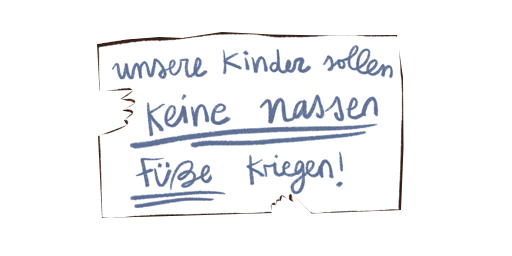 unsere Kinder sollen
Keine nassen
Füße Kriegen!